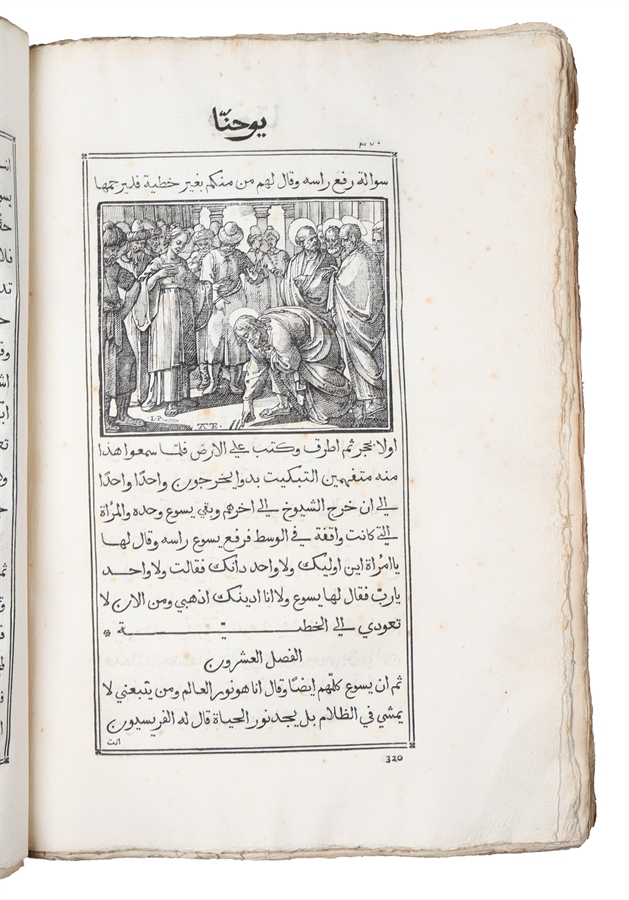 يوحنّا
٣٢٠
سوالة رفع راسه وقال لهم من منكم بغير خطية فليرجمها
L.P
ATE.
اولا بحجر ثم اطرف وكتب على الارض فلمّا سمعوا هذا
منه متفهمين التبكيت بدوا يخرجون واحدًا واحدًا
الي ان خرج الشيوخ الي اخرهم وبقي يسوع وحده والمرُاة
التي كانت واقفة في الوسط فرفع يسوع راسه وقال لها
يا امرُاة اين اوليك ولا واحد دانك فقالت ولا واحد
يا ربّ فقال لها يسوع ولا انا ادينك اذهبي ومن الان لا
تعودي الي الخطيّة *
الفصل العشرون
ثم ان يسوع كلّهم ايضًا وقال انا هو نور العالم ومن يتبعني لا
يمشي في الظلام بل يجد نور الحياة قال له الفريسيون
انت
320